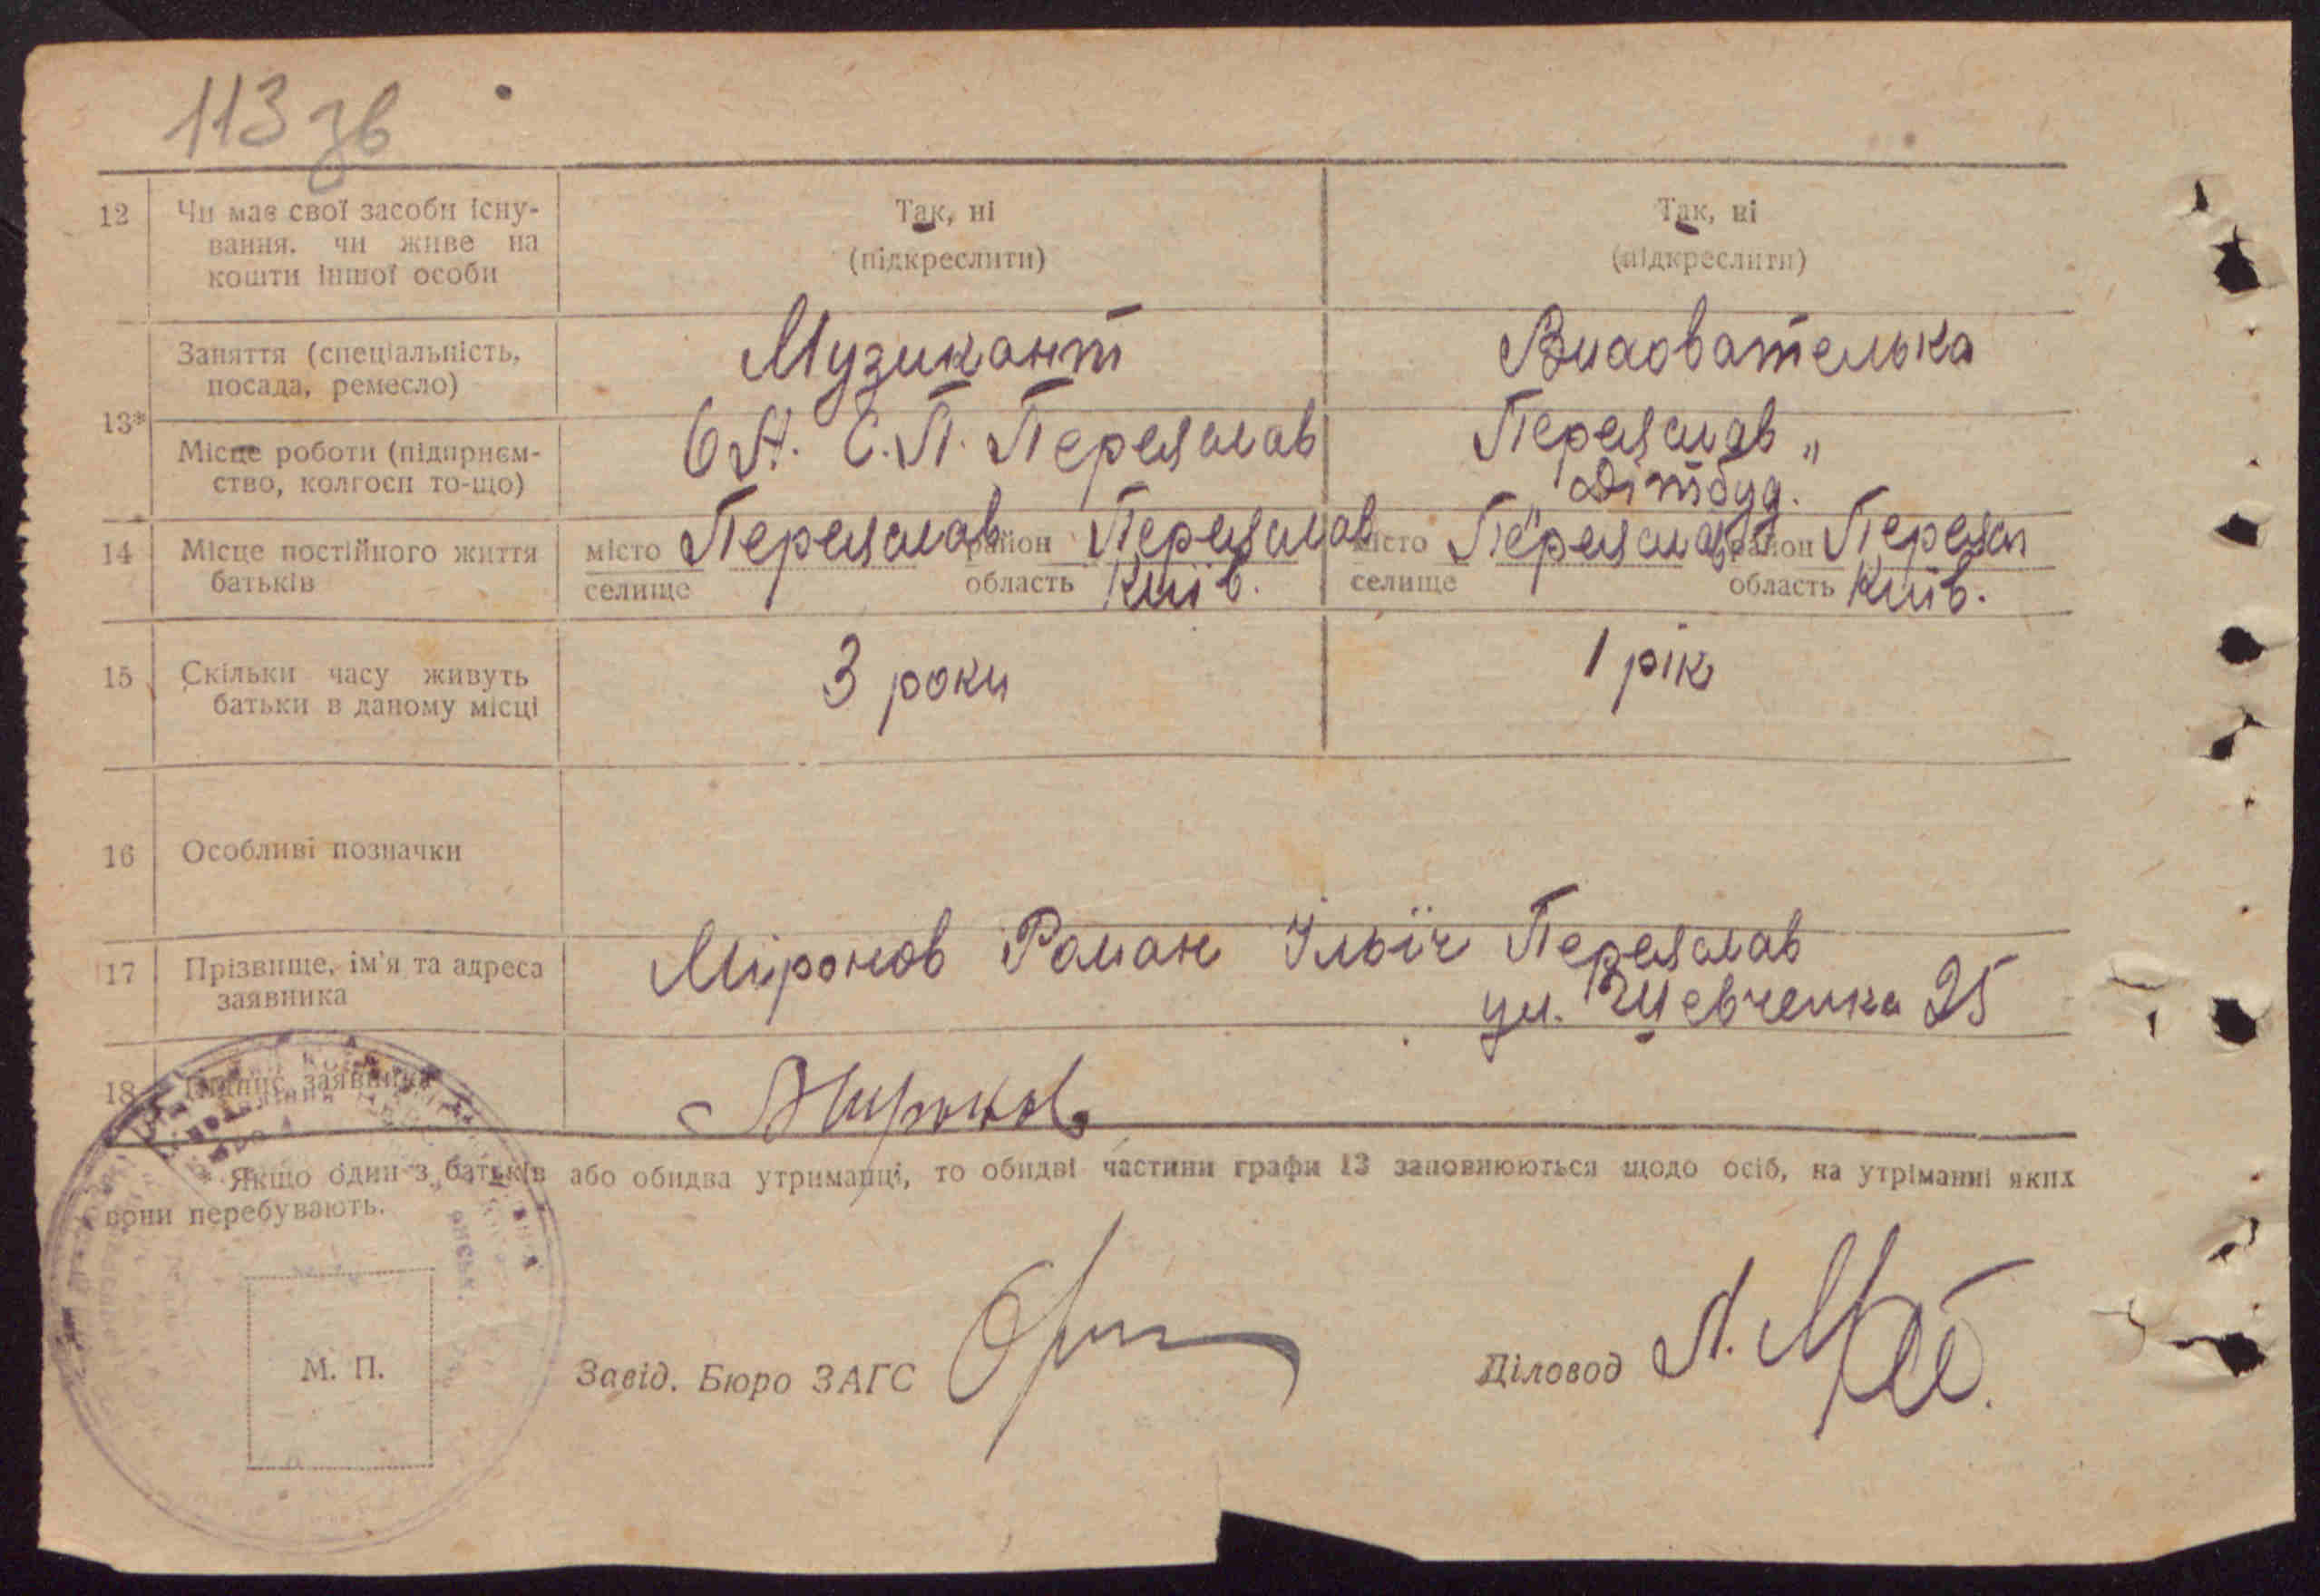 113 зв
12 Чи має свої засоби існу-
вання. чи живе на
кошти іншої особи
Так, ні
(підкреслити)
Так, ні
(підкреслити)
13*
Заняття (спеціальність,
посада, ремесло)
Музикант
Вихователька
Місце роботи (підприєм-
ство, колгосп то-що)
С.П. Переяслав
Переяслав
Дітбуд.
14 Місце постійного життя
батьків
місто Переяслав район Переяслав
селище область Київ.
місто Переяслав район Переясл
селище область Київ.
15 Скільки часу живуть
батьки в даному місці
3 роки
1 рік
16 Особливі позначки
17 Прізвище, ім'я та адреса
заявника
Міронов Роман Ільїч Переяслав
ул. Шевченка 25
18 Підпис заявника
Миронов
Якщо один з батьків або обидва утриманці, то обидві частини графи 13 заповнюються щодо осіб, на утріманні яких
вони перебувають.
М. П.
Завід. Бюро ЗАГС
Діловод